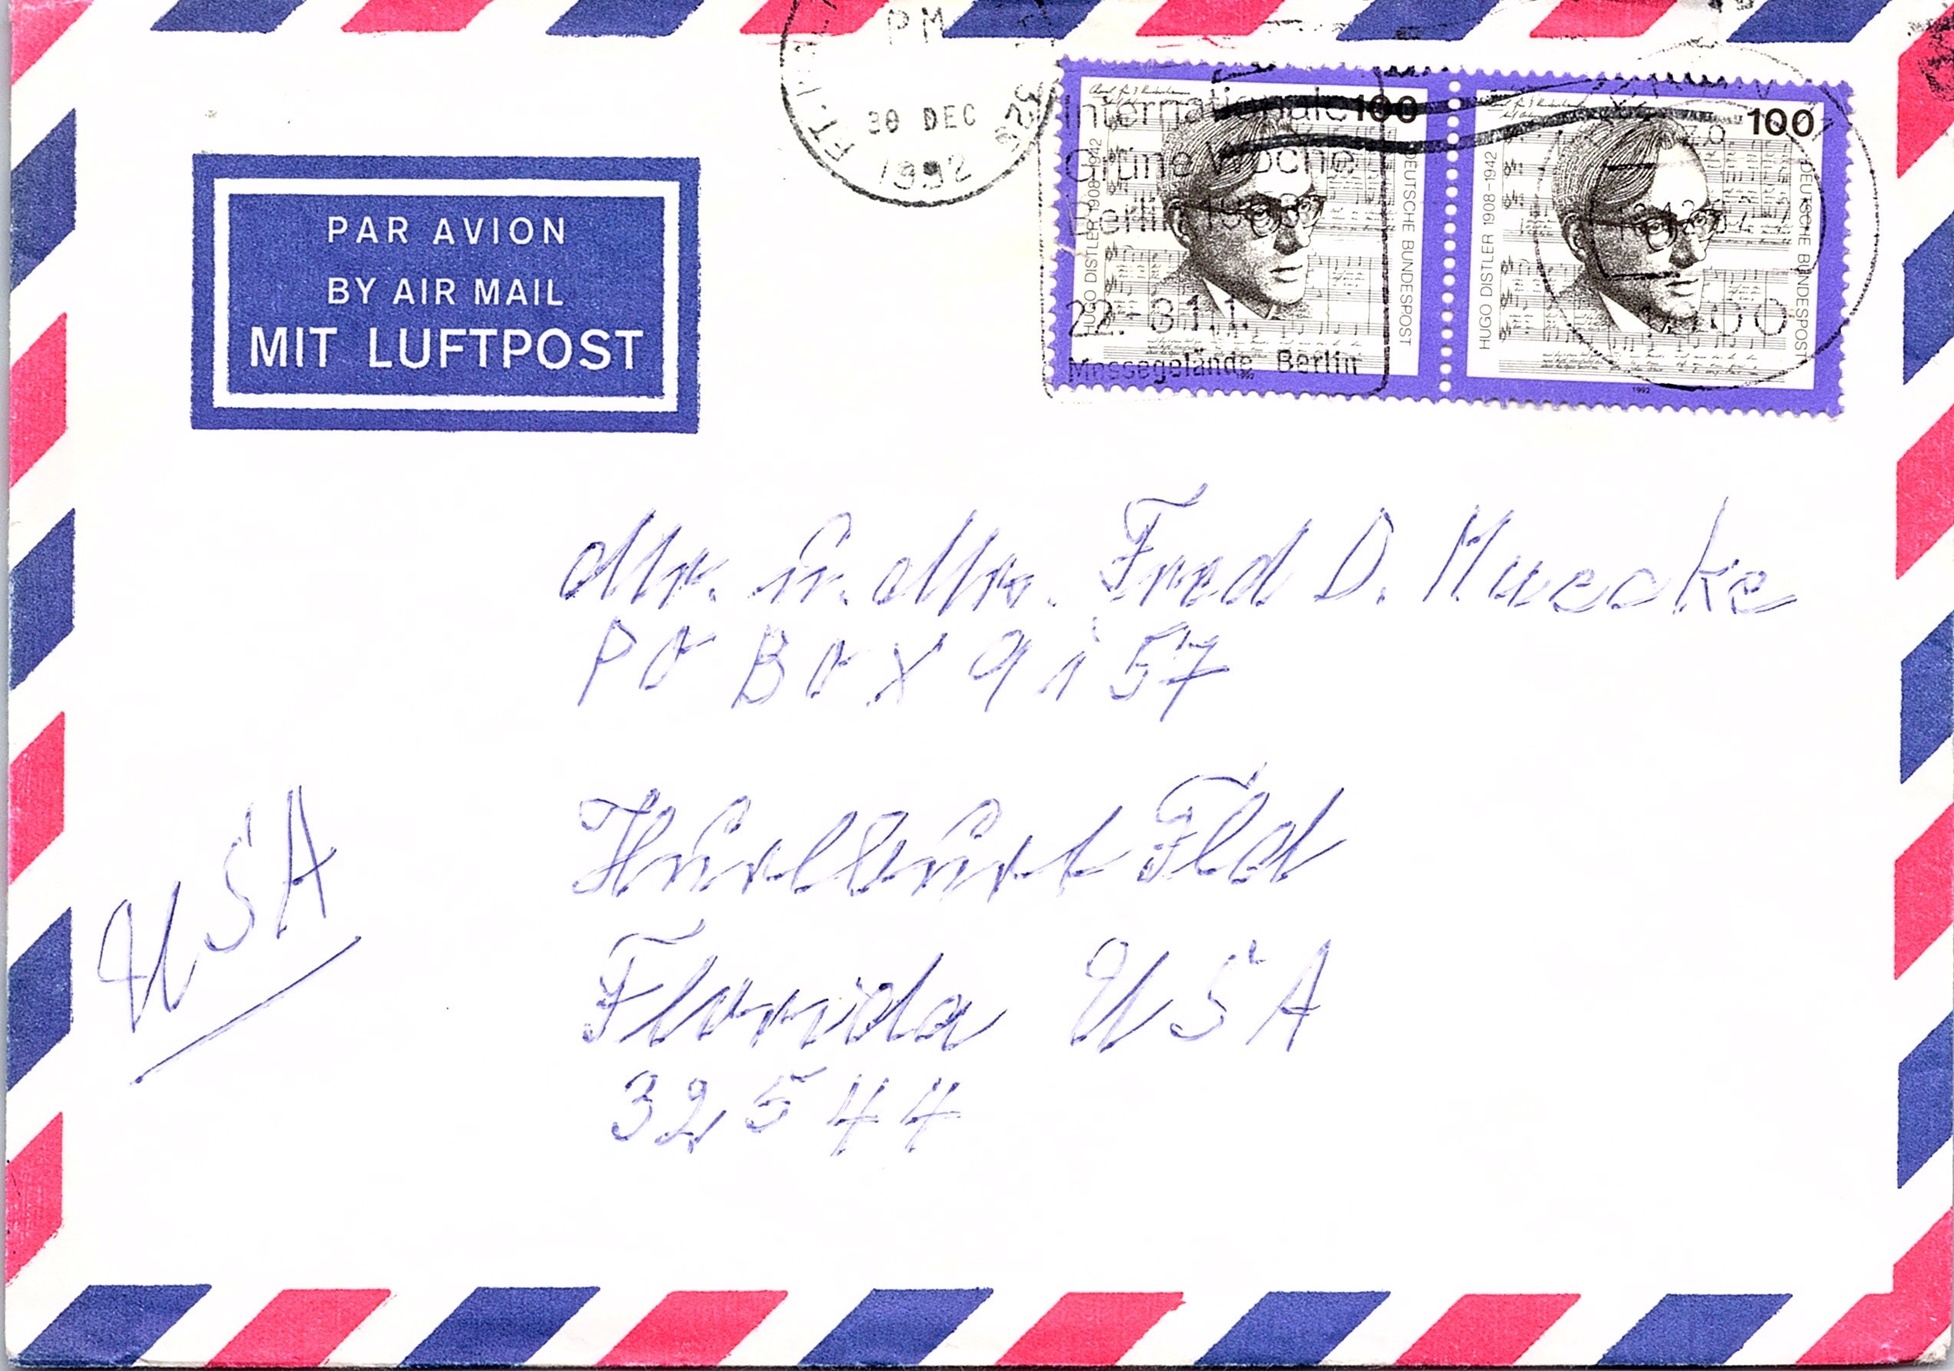 PM
30 DEC
1992
Internationale
Grüne Woche
Berlin
22.-31.1.
Messegelände Berlin
100
HUGO DISTLER 1908-1942
DEUTSCHE BUNDESPOST
100
HUGO DISTLER 1908-1942
DEUTSCHE BUNDESPOST
1992
PAR AVION
BY AIR MAIL
MIT LUFTPOST
Mr. u. Mrs. Fred D. Muecke
PO BOX 9157
Hurlburt Fld
Florida USA
32544
USA